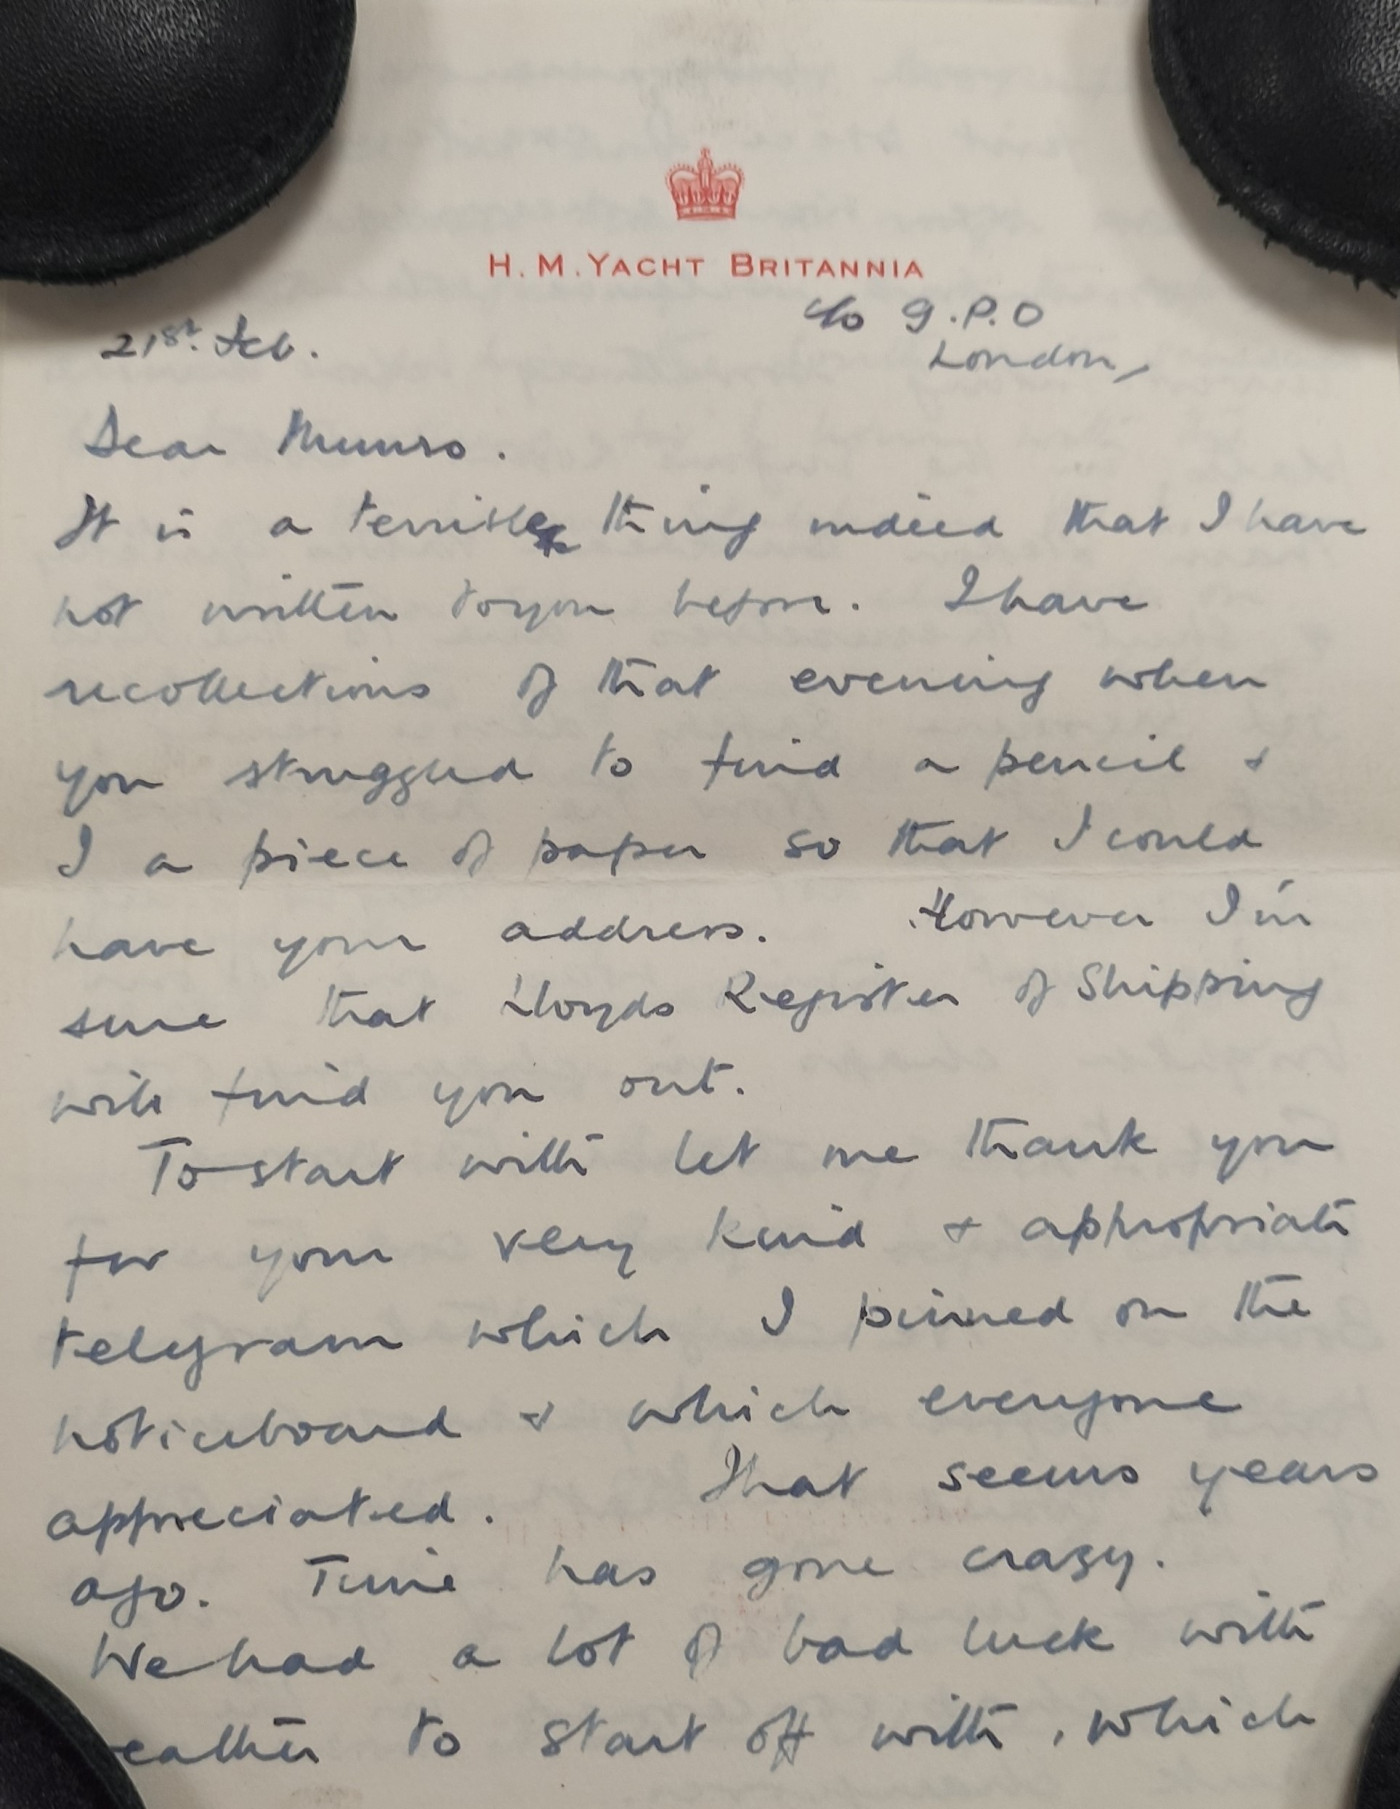 H. M. YACHT BRITANNIA
c/o G.P.O
21st. Feb.
London,
Dear Munro.
It is a terrible thing indeed that I have
not written to you before. I have
recollections of that evening when
you struggled to find a pencil &
I a piece of paper so that I could
have your address. However I'm
sure that Lloyds Register of Shipping
will find you out.
To start with let me thank you
for your very kind & appropriate
telegram which I pinned on the
noticeboard & which everyone
appreciated. That seems years
ago. Time has gone crazy.
We had a lot of bad luck with
weather to start off with, which